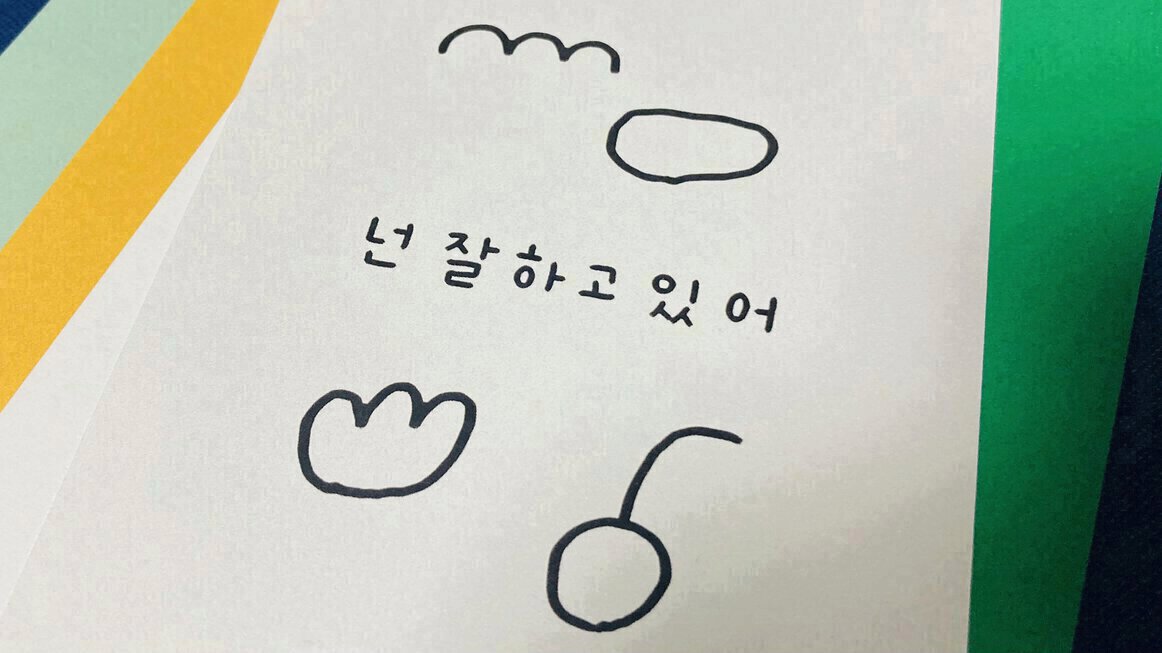 넌 잘하고 있어